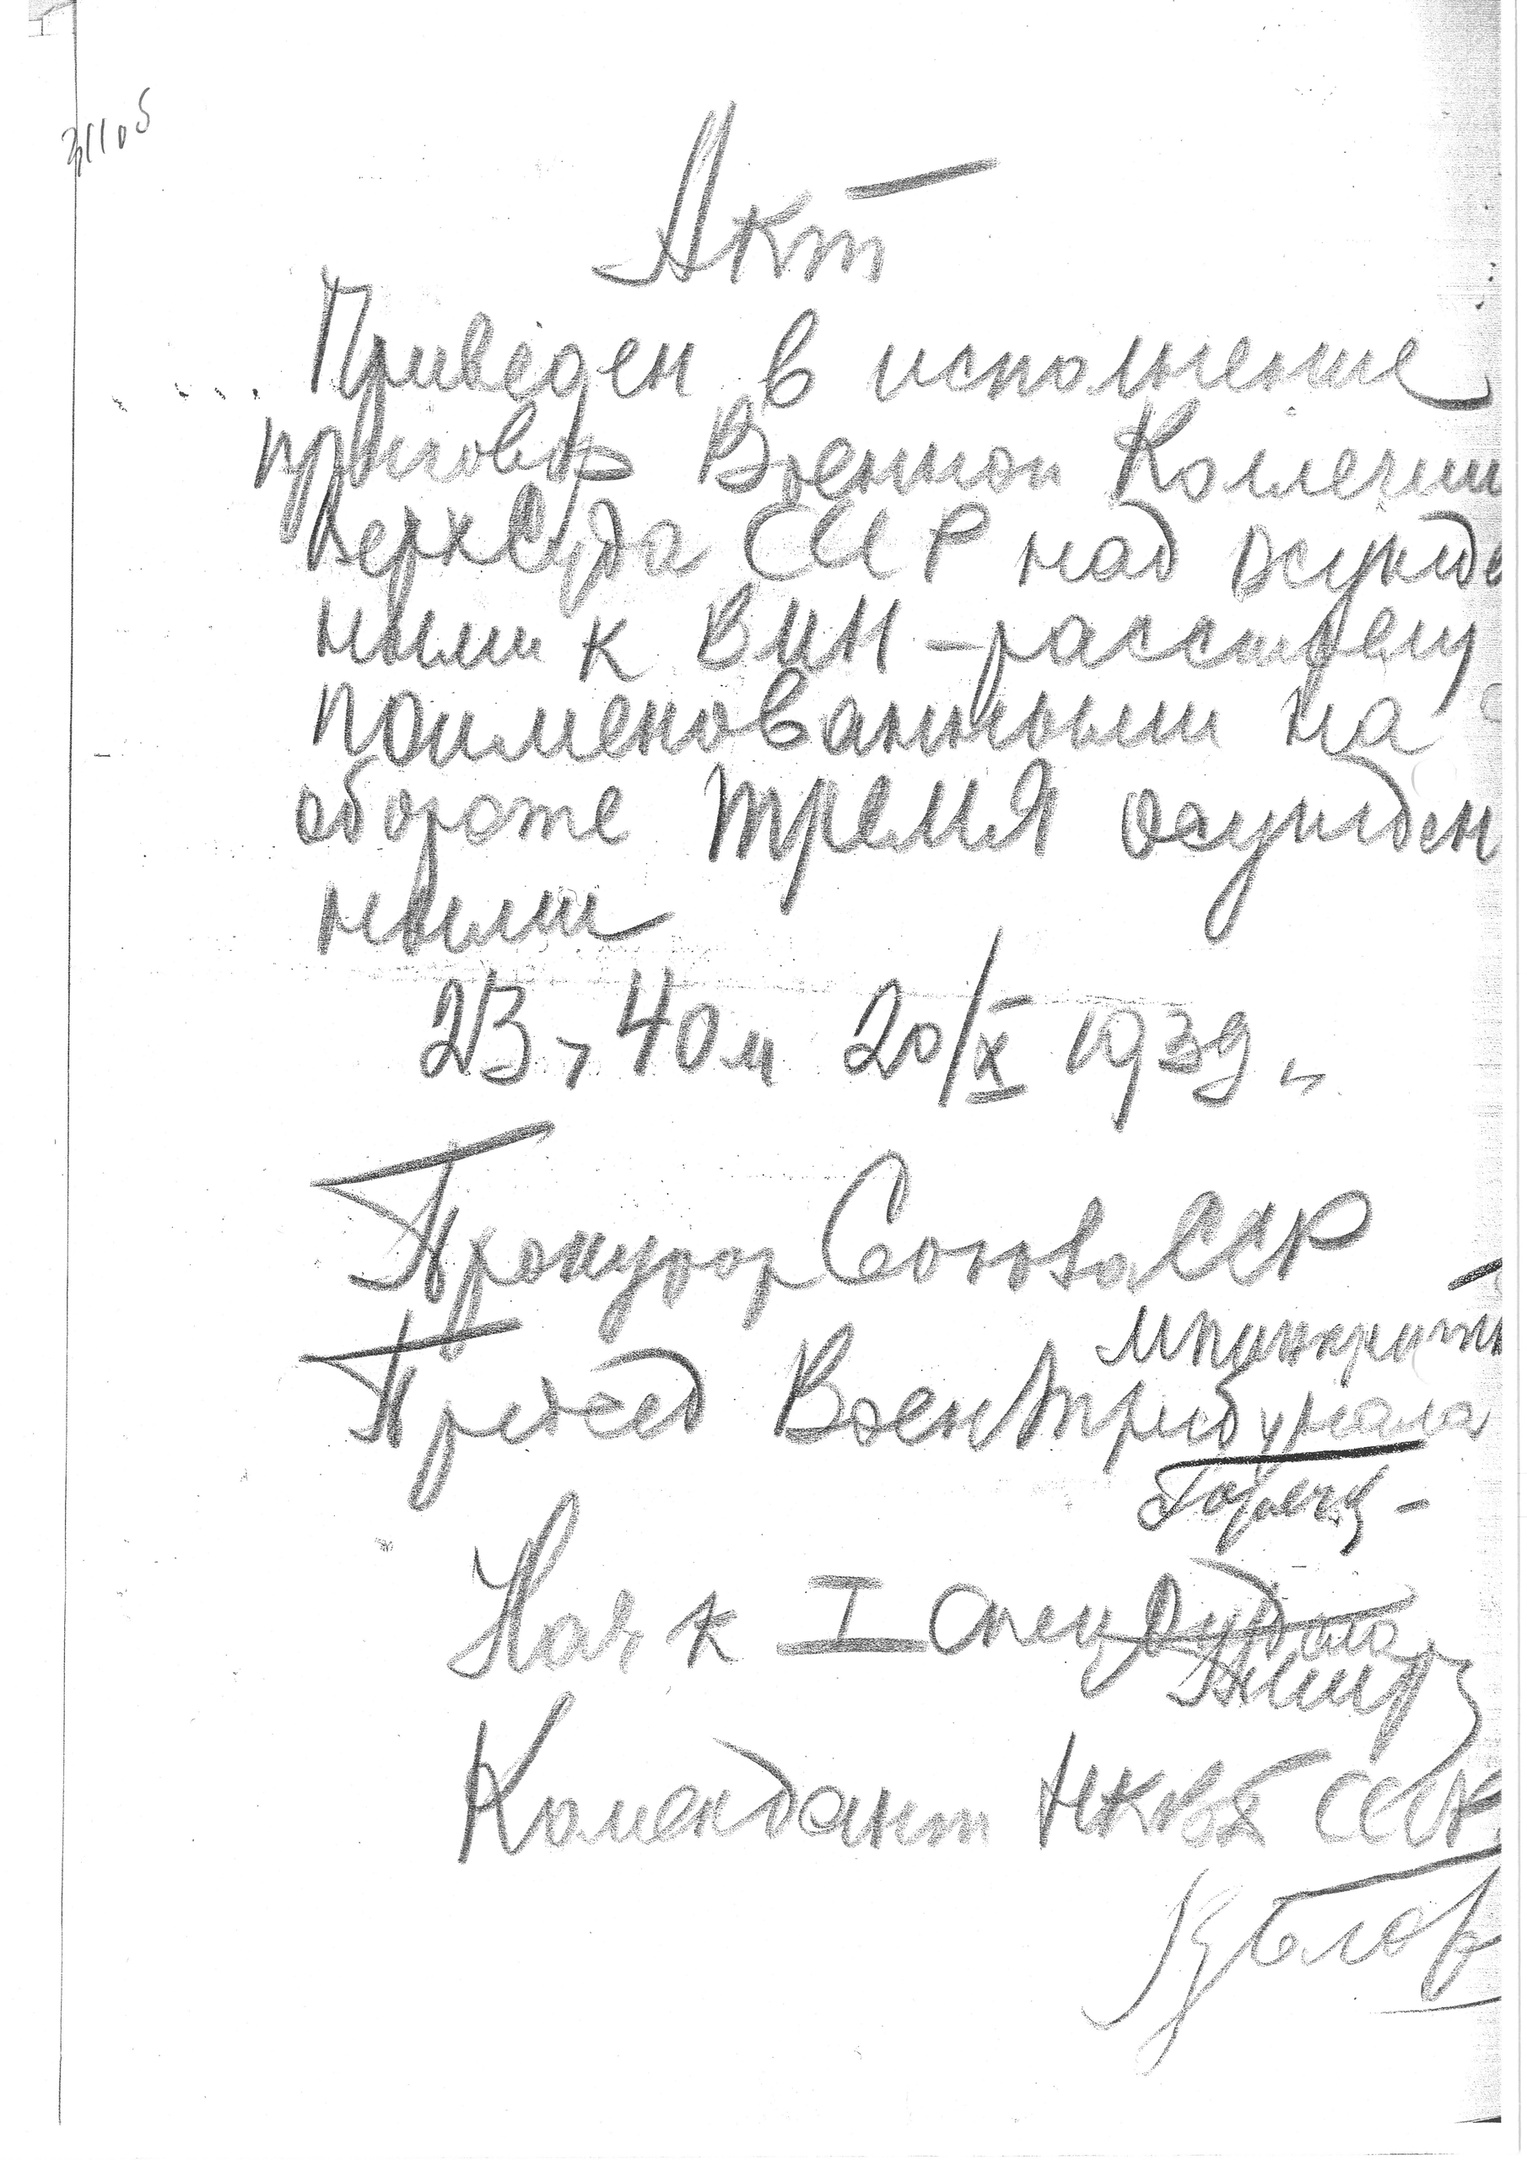 311об
Акт
Приведен в исполнение
приговор Военной Коллегии
ВерхСуда СССР над осужде
ными к ВМН – расстрелу
поименованными на
обороте тремя осужден
ными
23, 40м 20/X 1939
Прокурор Союза ССР
Председ ВоенТрибунала
Нач к I Спец Отдела
Комендант НКВД СССР
Блохин